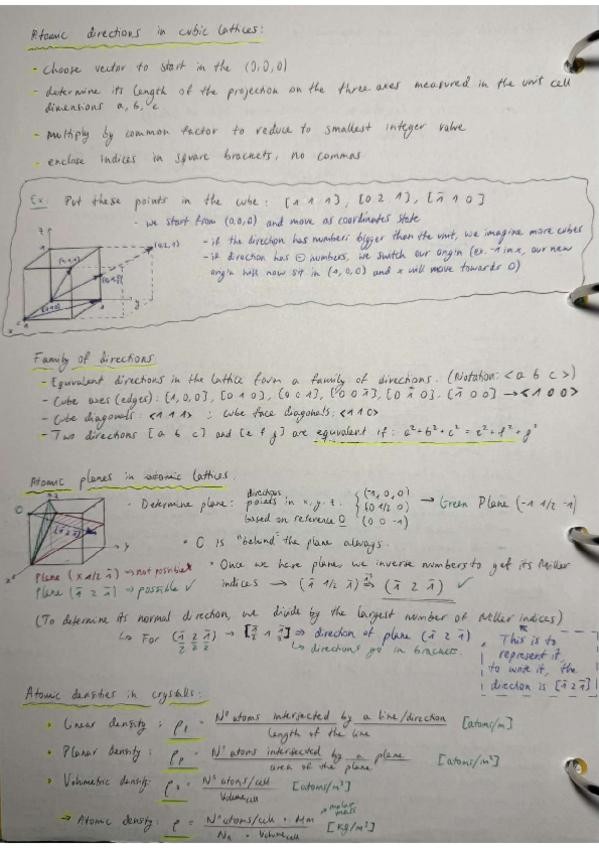 Atomic directions in cubic lattices:
- choose vector to start in the (0,0,0)
- determine its length of the projection on the three axes measured in the unit cell
dimensions a, b, c
- multiply by common factor to reduce to smallest integer value
- enclose indices in square brackets, no commas
Ex: Put these points in the cube: [1 1 1], [0 2 1], [1̄ 1 0]
- we start from (0,0,0) and move as coordinates state
- if the direction has numbers bigger than the unit, we imagine more cubes
- if direction has ⊖ numbers, we switch our origin (ex. -1 in x, our new
origin will now sit in (1,0,0) and x will move towards 0)
z
1
(0,2,1)
y
x
Family of directions
- Equivalent directions in the lattice form a family of directions. (Notation: <a b c>)
- Cube axes (edges): [1,0,0], [0 1 0], [0 0 1], [0 0 1̄], [0 1̄ 0], [1̄ 0 0] → <1 0 0>
- Cube diagonals: <1 1 1> ; cube face diagonals: <1 1 0>
- Two directions [a b c] and [e f g] are equivalent if: a² + b² + c² = e² + f² + g²
Atomic planes in atomic lattices.
z
y
x
O
[1̄ 2 1̄]
• Determine plane: directions
points in x, y, z.
based on reference O
(-1, 0, 0)
(0 1/2 0)
(0 0 -1)
→ Green Plane (-1 1/2 -1)
• O is "behind" the plane always.
Plane (x 1/2 1̄) → not possible ×
Plane (1̄ 2 1̄) → possible ✓
• Once we have plane, we inverse numbers to get its Miller
indices → (1̄ 1/2 1̄) → (1̄ 2 1̄) ✓
(To determine its normal direction, we divide by the largest number of Miller indices)
↳ For (1̄/2 2/2 1̄/2) → [1̄/2 1 1̄/2] ⇒ direction of plane (1̄ 2 1̄)
↳ directions go in brackets.
This is to
represent it,
to write it, the
direction is [1̄ 2 1̄]
Atomic densities in crystals:
• Linear density: ρl = Nº atoms intersected by a line/direction / Length of the line [atoms/m]
• Planar density: ρp = Nº atoms intersected by a plane / area of the plane [atoms/m²]
• Volumetric density: ρv = Nº atoms/cell / Volume cell [atoms/m³]
→ Atomic density: ρ = Nº atoms/cell · Mm / Na · Volume cell [kg/m³]
molar
mass